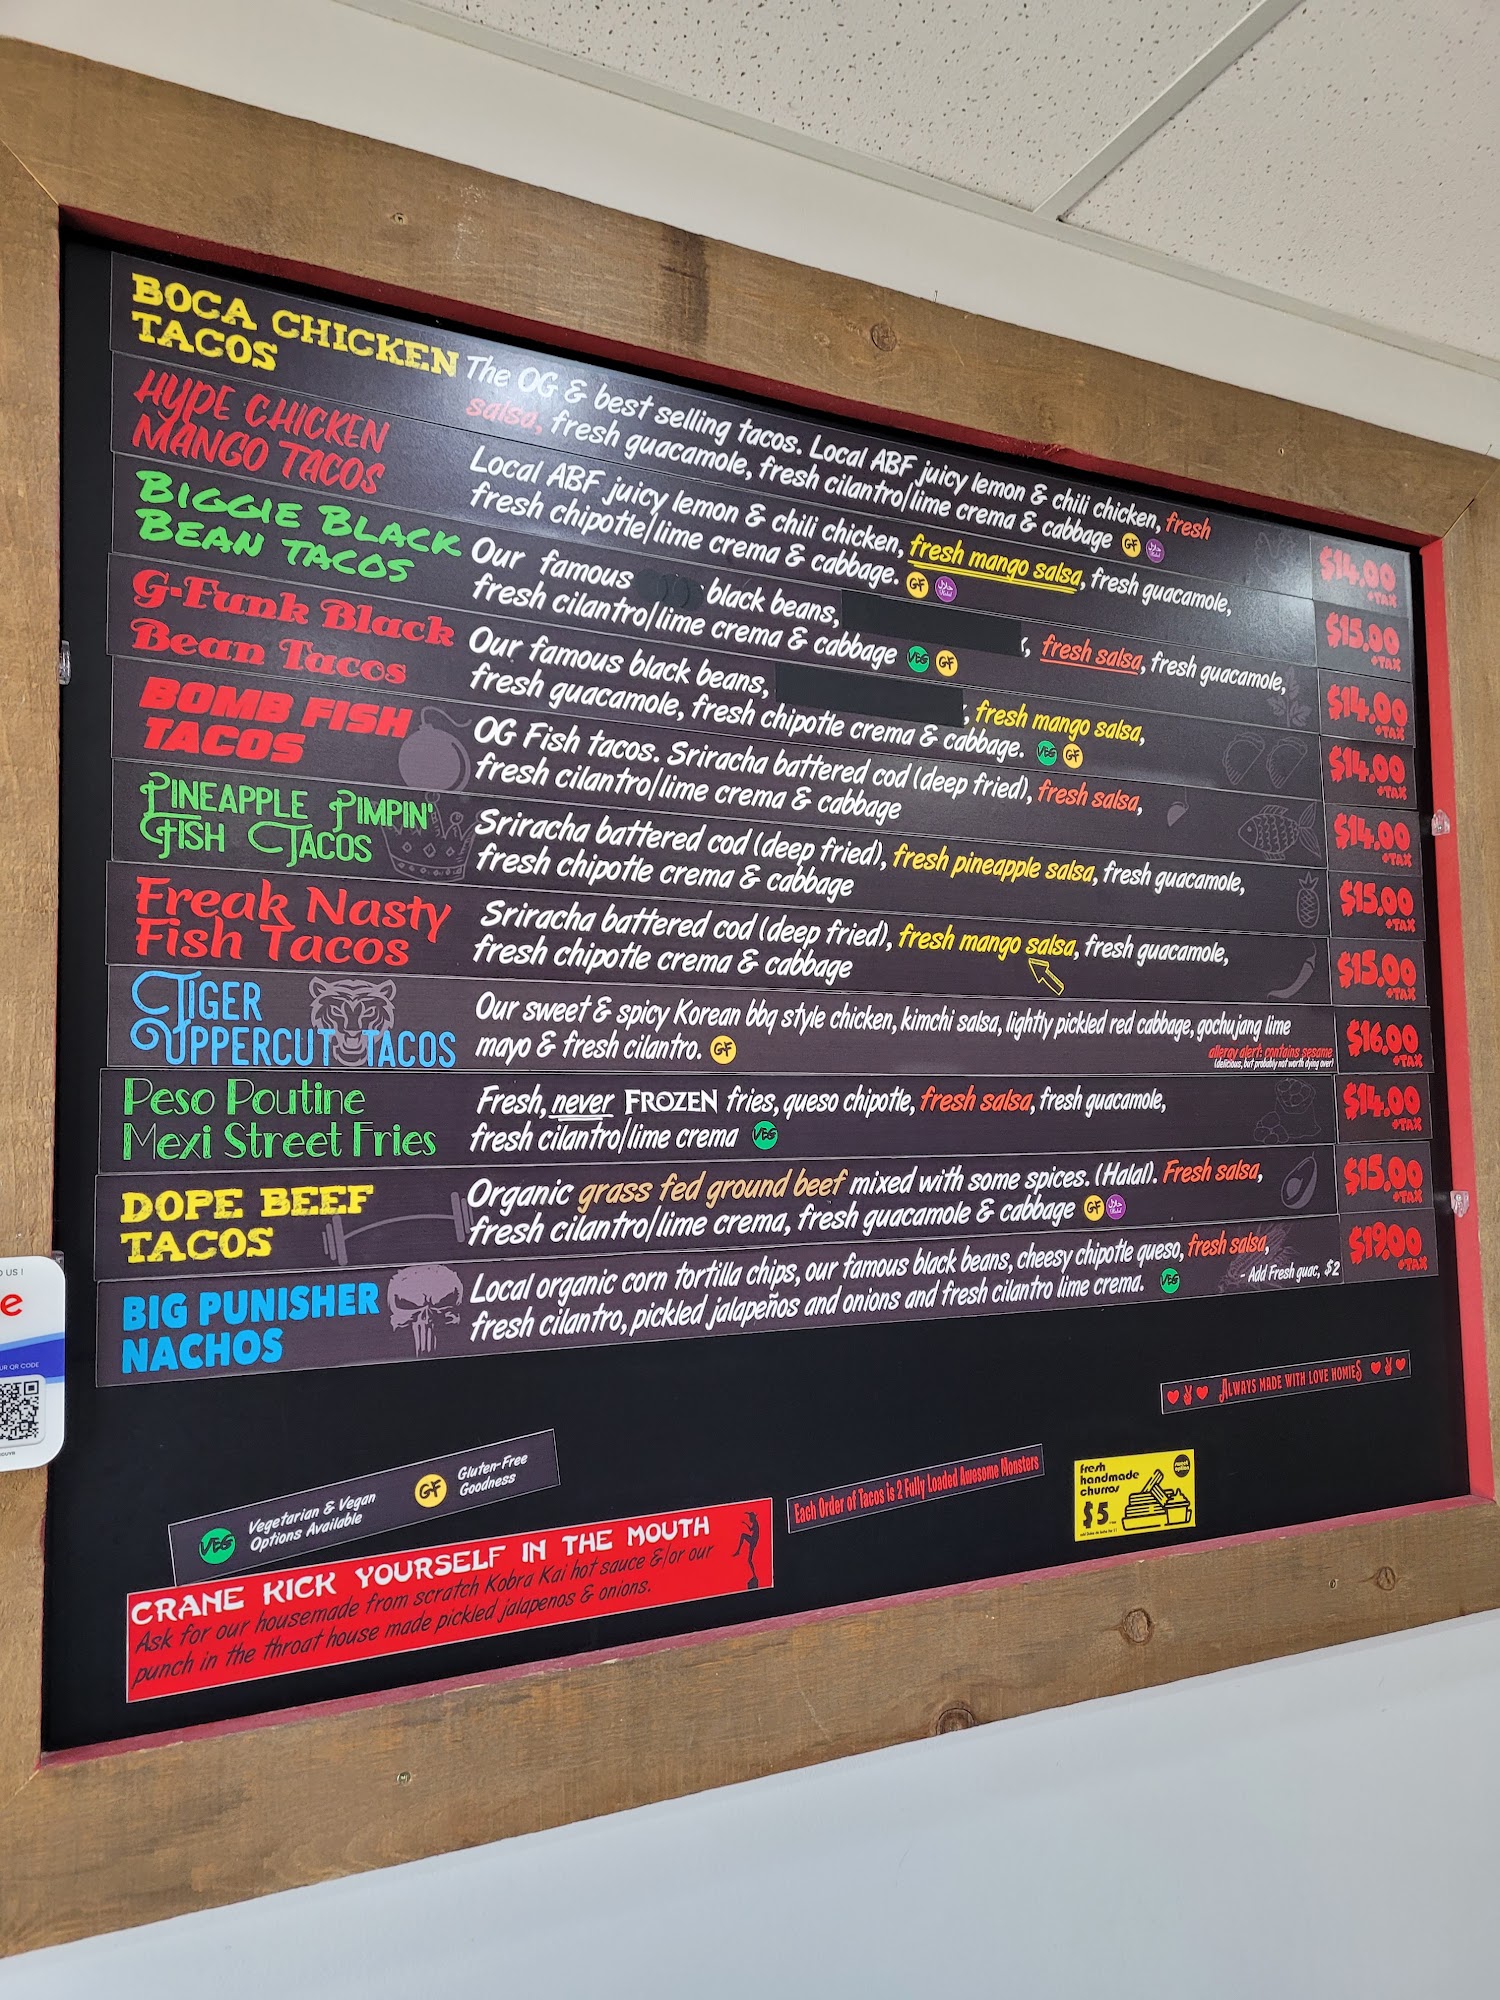 BOCA CHICKEN
TACOS
The OG & best selling tacos. Local ABF juicy lemon & chili chicken, fresh
salsa, fresh guacamole, fresh cilantro/lime crema & cabbage GF
$14.00
+TAX
HYPE CHICKEN
MANGO TACOS
Local ABF juicy lemon & chili chicken, fresh mango salsa, fresh guacamole,
fresh chipotle/lime crema & cabbage. GF
$15.00
+TAX
BIGGIE BLACK
BEAN TACOS
Our famous black beans, fresh salsa, fresh guacamole,
fresh cilantro/lime crema & cabbage VEG GF
$14.00
+TAX
G-Funk Black
Bean Tacos
Our famous black beans, , fresh mango salsa,
fresh guacamole, fresh chipotle crema & cabbage. VEG GF
$14.00
+TAX
BOMB FISH
TACOS
OG Fish tacos. Sriracha battered cod (deep fried), fresh salsa,
fresh cilantro/lime crema & cabbage
$14.00
+TAX
PINEAPPLE PIMPIN'
FISH TACOS
Sriracha battered cod (deep fried), fresh pineapple salsa, fresh guacamole,
fresh chipotle crema & cabbage
$15.00
+TAX
Freak Nasty
Fish Tacos
Sriracha battered cod (deep fried), fresh mango salsa, fresh guacamole,
fresh chipotle crema & cabbage
$15.00
+TAX
TIGER
UPPERCUT TACOS
Our sweet & spicy Korean bbq style chicken, kimchi salsa, lightly pickled red cabbage, gochujang lime
mayo & fresh cilantro. GF
allergy alert: contains sesame
(delicious, but probably not worth dying over)
$16.00
+TAX
Peso Poutine
Mexi Street Fries
Fresh, never FROZEN fries, queso chipotle, fresh salsa, fresh guacamole,
fresh cilantro/lime crema VEG
$14.00
+TAX
DOPE BEEF
TACOS
Organic grass fed ground beef mixed with some spices. (Halal). Fresh salsa,
fresh cilantro/lime crema, fresh guacamole & cabbage GF
$15.00
+TAX
BIG PUNISHER
NACHOS
Local organic corn tortilla chips, our famous black beans, cheesy chipotle queso, fresh salsa,
fresh cilantro, pickled jalapeños and onions and fresh cilantro lime crema. VEG
- Add Fresh guac, $2
$19.00
+TAX
ALWAYS MADE WITH LOVE HOMIES
VEG Vegetarian & Vegan
Options Available
GF Gluten-Free
Goodness
Each Order of Tacos is 2 Fully Loaded Awesome Monsters
fresh
handmade
churros
$5
sweet
option
CRANE KICK YOURSELF IN THE MOUTH
Ask for our housemade from scratch Kobra Kai hot sauce &/or our
punch in the throat house made pickled jalapenos & onions.
D US !
e
UR QR CODE